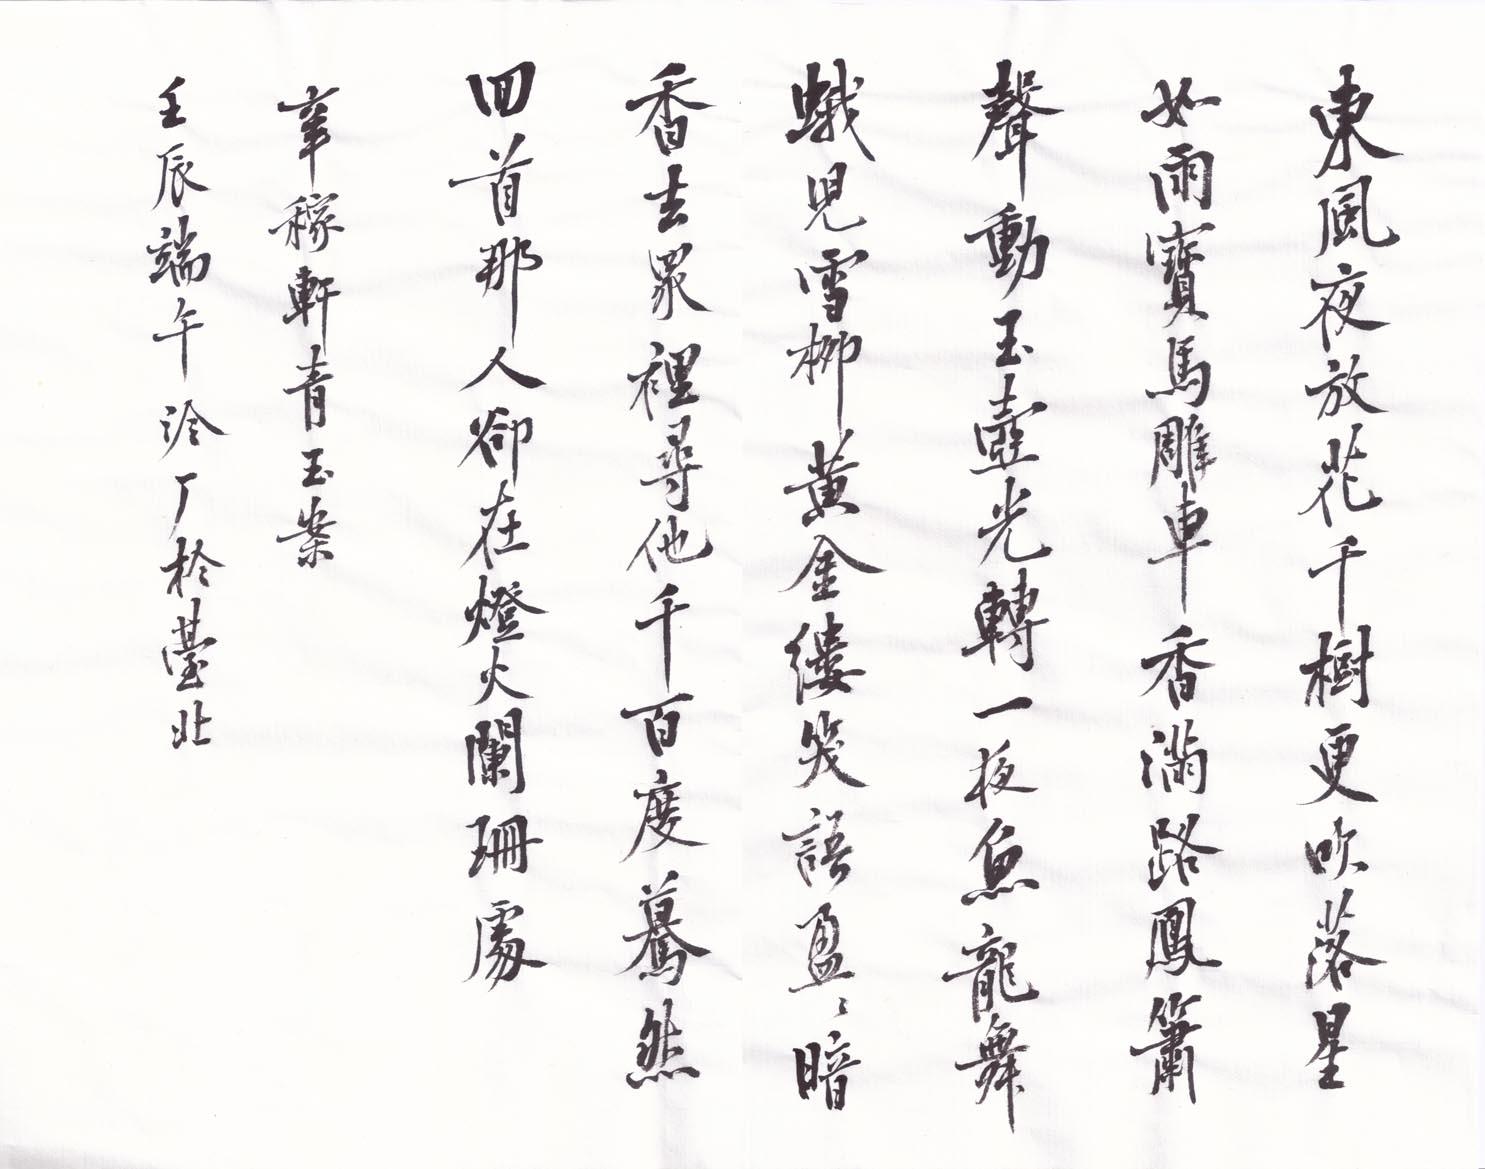 東風夜放花千樹更吹落星
如雨寶馬雕車香滿路鳳簫
聲動玉壺光轉一夜魚龍舞
蛾兒雪柳黃金縷笑語盈〻暗
香去眾裡尋他千百度驀然
回首那人卻在燈火闌珊處
辛稼軒青玉案
壬辰端午泠厂於臺北